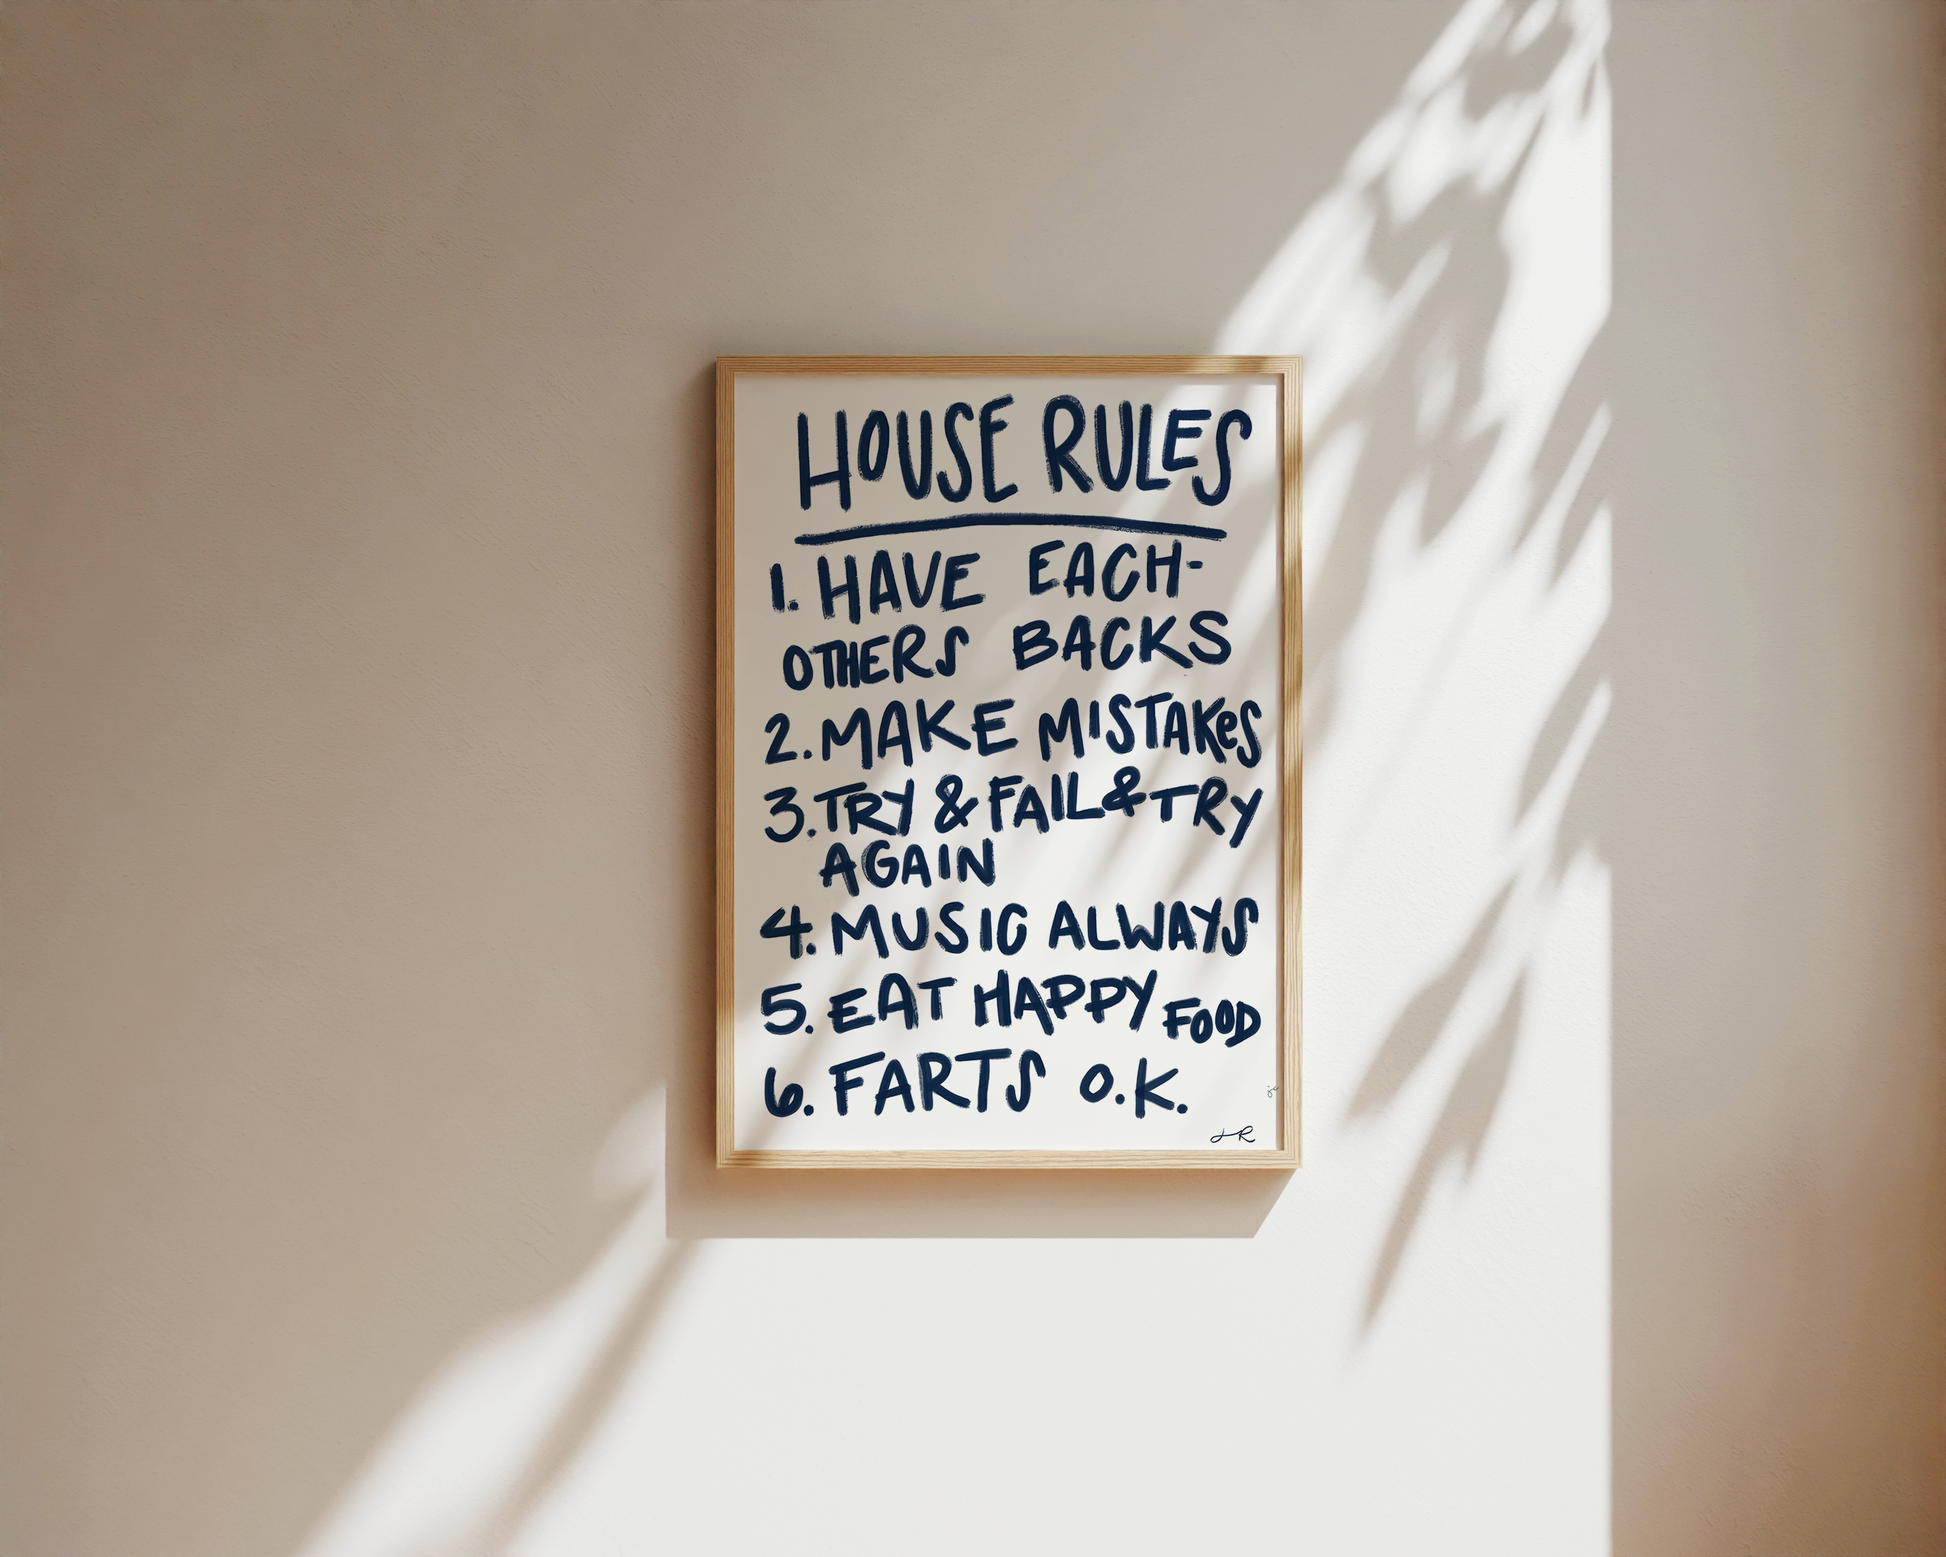 HOUSE RULES
1. HAVE EACH-
OTHERS BACKS
2. MAKE MISTAKeS
3. TRY & FAIL & TRY
AGAIN
4. MUSIC ALWAYS
5. EAT HAPPY FOOD
6. FARTS O.K.